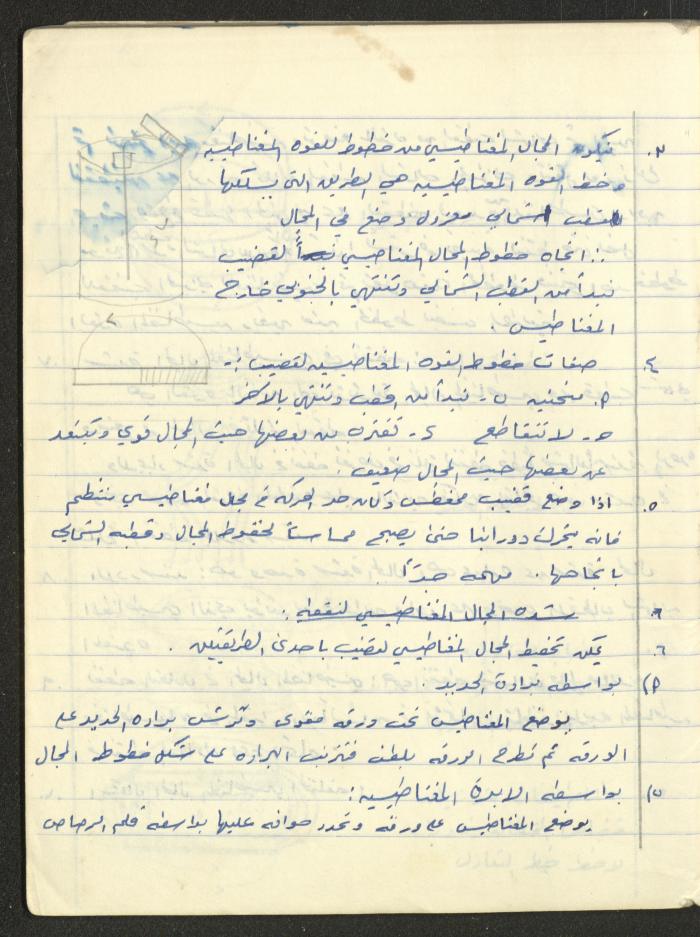 ٣. يتكون المجال المغناطيسي من خطوط للقوه المغناطيسيه
وخط القوه المغناطيسيه هي الطريق التي يسلكها
قطب شمالي معزول وضع في المجال
∴ اتجاه خطوط المجال المغناطيسي لقضيب
تبدأ من القطب الشمالي وتنتهي بالجنوبي خارج
المغناطيس .
٤. صفات خطوط القوه المغناطيسيه لقضيب :-
٢. منحنيه ن- تبدأ من قطب وتنتهي بالآخر
حـ- لا تتقاطع ٤- تقترب من بعضها حيث المجال قوي وتبتعد
عن بعضها حيث المجال ضعيف
٥. اذا وضع قضيب ممغطس وكان حر الحركه في مجال مغناطيسي منتظم
فانه يتحرك دورانيا حتى يصبح مماساً لخطوط المجال وقطبه الشمالي
باتجاهها . مهمه جداً
٦ شده المجال المغناطيسي لنقطه :
٦. يمكن تخطيط المجال المغناطيسي لقضيب باحدى الطريقتين .
٢) بواسطه برادة الحديد .
يوضع المغناطيس تحت ورقه مقوى وترش براده الحديد على
الورقه ثم تطرح الورقه بلطف فتترتب البراده على شكل خطوط المجال
ن) بواسطه الابرة المغناطيسيه :
يوضع المغناطيس على ورقه وتحدد حوافه عليها بواسطه قلم الرصاص